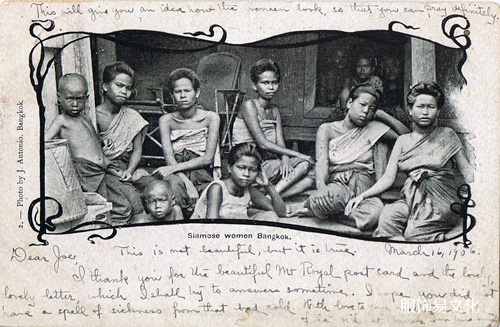 This will give you an idea how the women look, so that you can pray definitely
2. — Photo by J. Antonio. Bangkok.
Siamese women Bangkok.
Dear Joe, This is not beautiful, but it is true. March 16, 1906.
I thank you for the beautiful Mt Royal post card and the lovely,
lovely letter, which I shall try to answer sometime. I hope you did not
have a spell of sickness from that bad cold. With love to you
服饰易文化